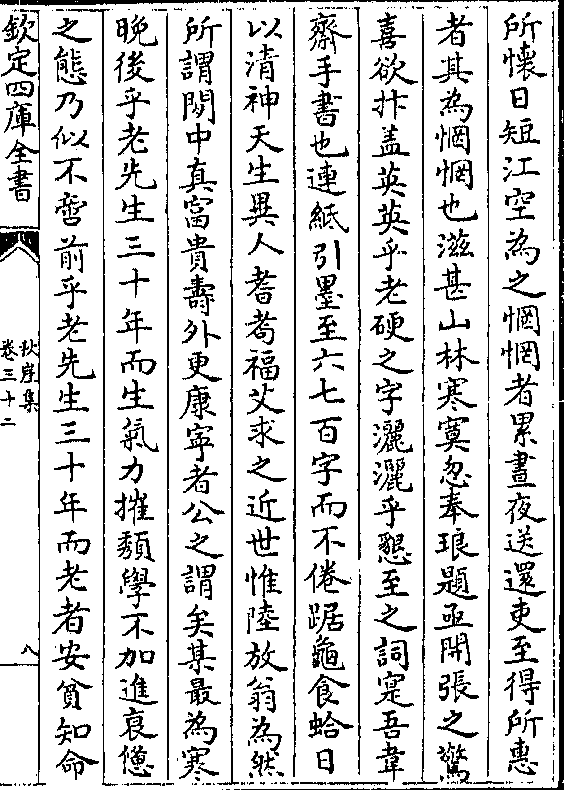 所懷日短江空為之惘惘者累晝夜送還吏至得所惠
者其為惘惘也滋甚山林寒寞忽奉琅題亟開張之驚
喜欲抃盖英英乎老硬之字灑灑乎懇至之詞寔吾韋
齋手書也連紙引墨至六七百字而不倦踞龜食蛤日
以清神天生異人耆耇福艾求之近世惟陸放翁為然
所謂閑中真富貴壽外更康寧者公之謂矣某最為寒
晚後乎老先生三十年而生氣力摧頽學不加進衰憊
之態乃似不啻前乎老先生三十年而老者安貧知命
欽定四庫全書
秋崖集
卷三十二
八